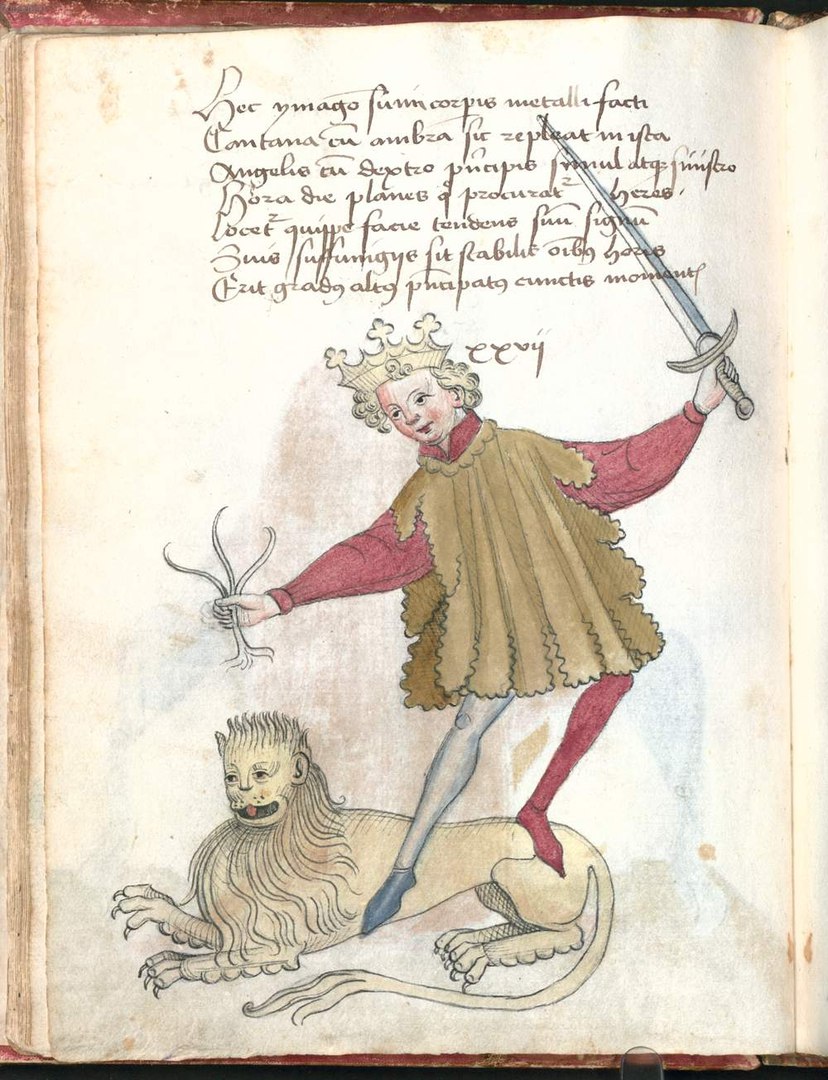 Hec ymago sum corpis metalli facti
Cantana cū ambra sic repleat in ista
Angelis cū dextro pncipis simul atqz sinistro
Hora die planes q procurat heres.
Locet quippe facie tendens suū signū
Suis suffumigijs sit stabilis oībus horis
Erit gradus altus pncipatus cunctis moment
xxvij